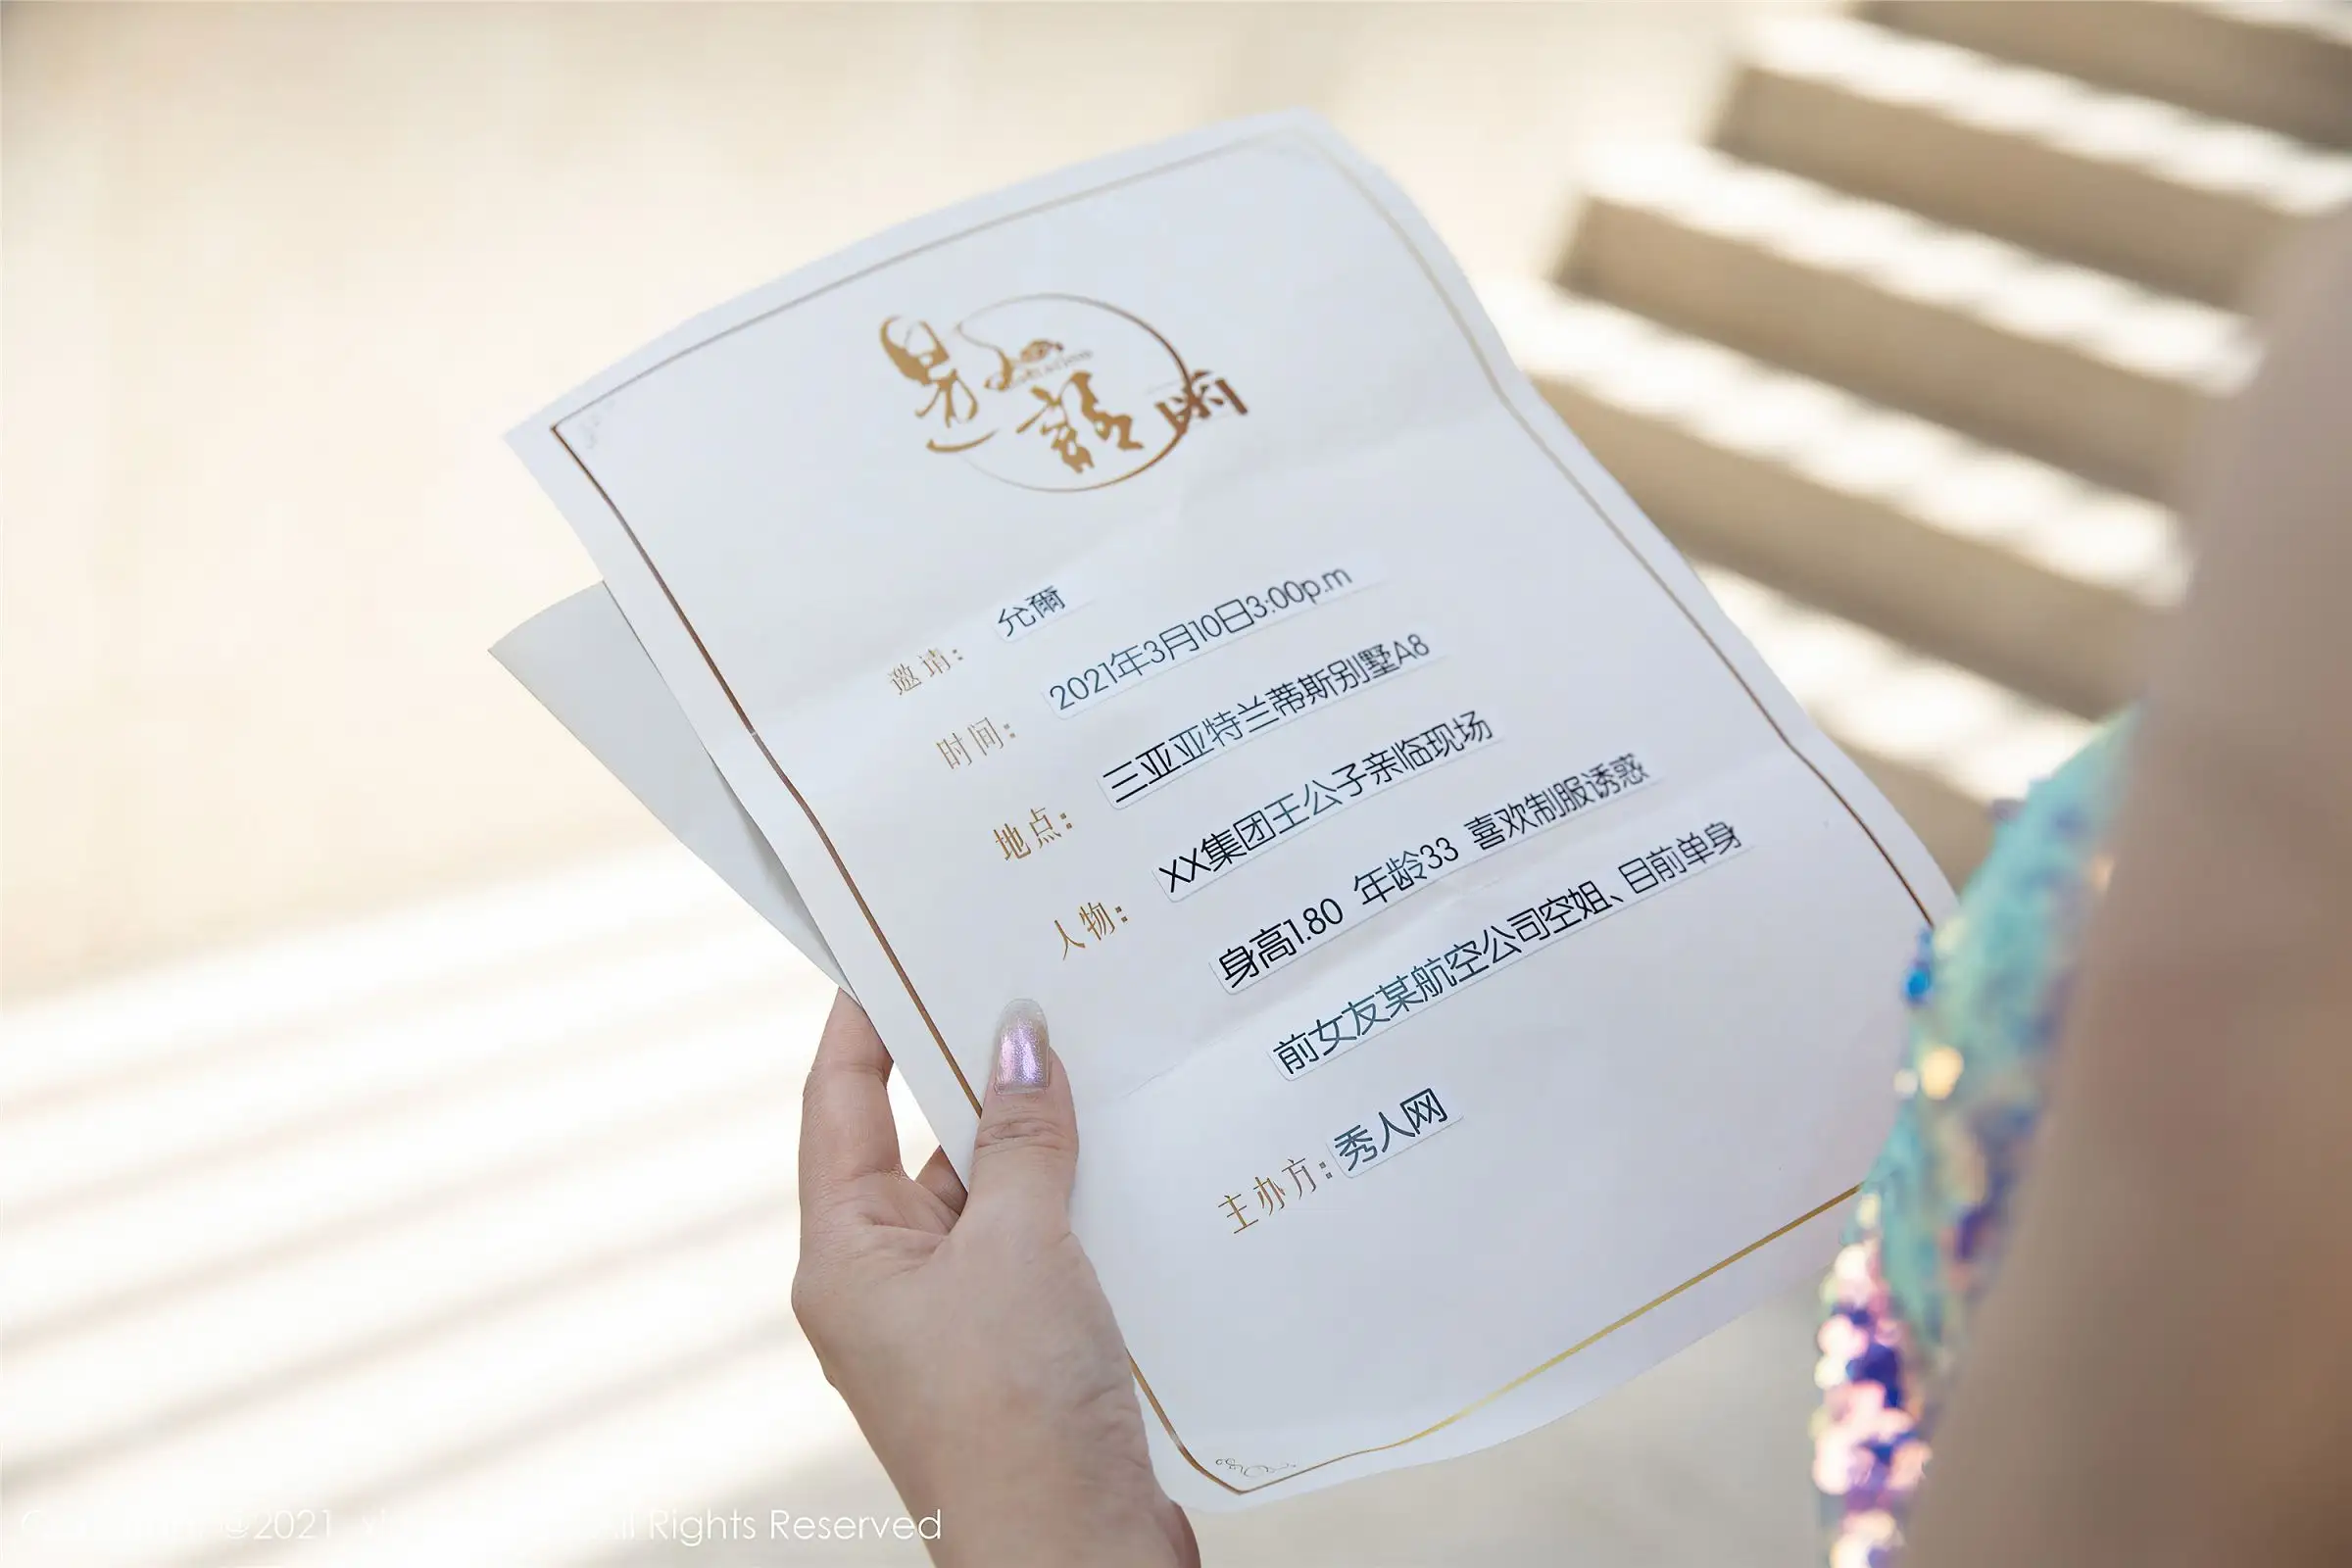 邀請函
邀请：允爾
时间：2021年3月10日3:00p.m
地点：三亚亚特兰蒂斯别墅A8
人物：XX集团王公子亲临现场
身高1.80 年龄33 喜欢制服诱惑
前女友某航空公司空姐、目前单身
主办方：秀人网
©2021 All Rights Reserved